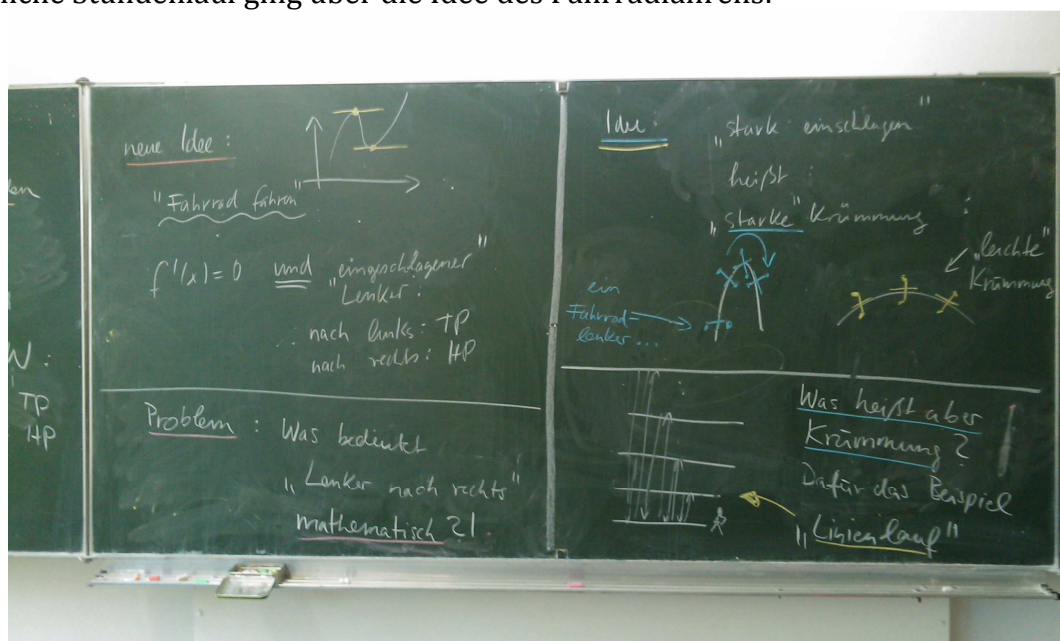 über die Idee des Fahrradfahrens.
W:
TP
HP
neue Idee:
"Fahrrad fahren"
f'(x)=0 und „eingeschlagener
Lenker":
nach links: TP
nach rechts: HP
Problem: Was bedeutet
„Lenker nach rechts"
mathematisch?!
Idee: „stark einschlagen"
heißt:
„starke" Krümmung:
ein
Fahrrad-
lenker...
„leichte"
Krümmung
Was heißt aber
Krümmung?
Dafür das Beispiel
„Linienlauf"